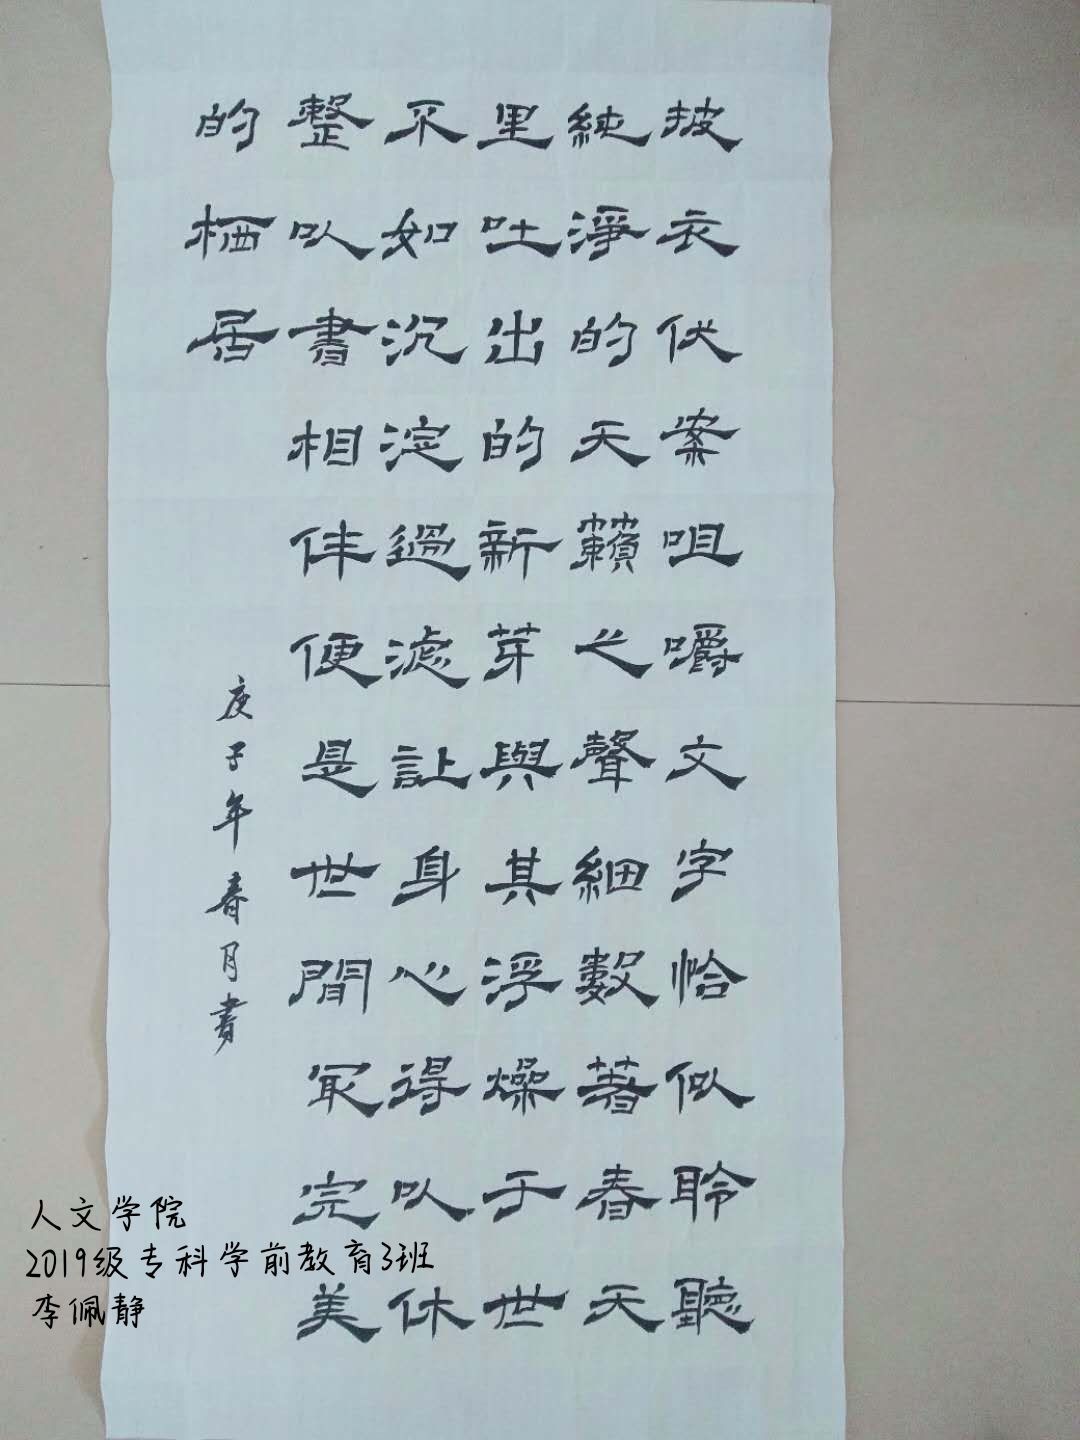 披衣伏案咀嚼文字恰似聆聽
純淨的天籟之聲細數著春天
里吐出的新芽與其浮燥于世
不如沉淀過滤让身心得以休
整以書相伴便是世間最完美
的栖居
庚子年春月書
人文学院
2019级专科学前教育3班
李佩静